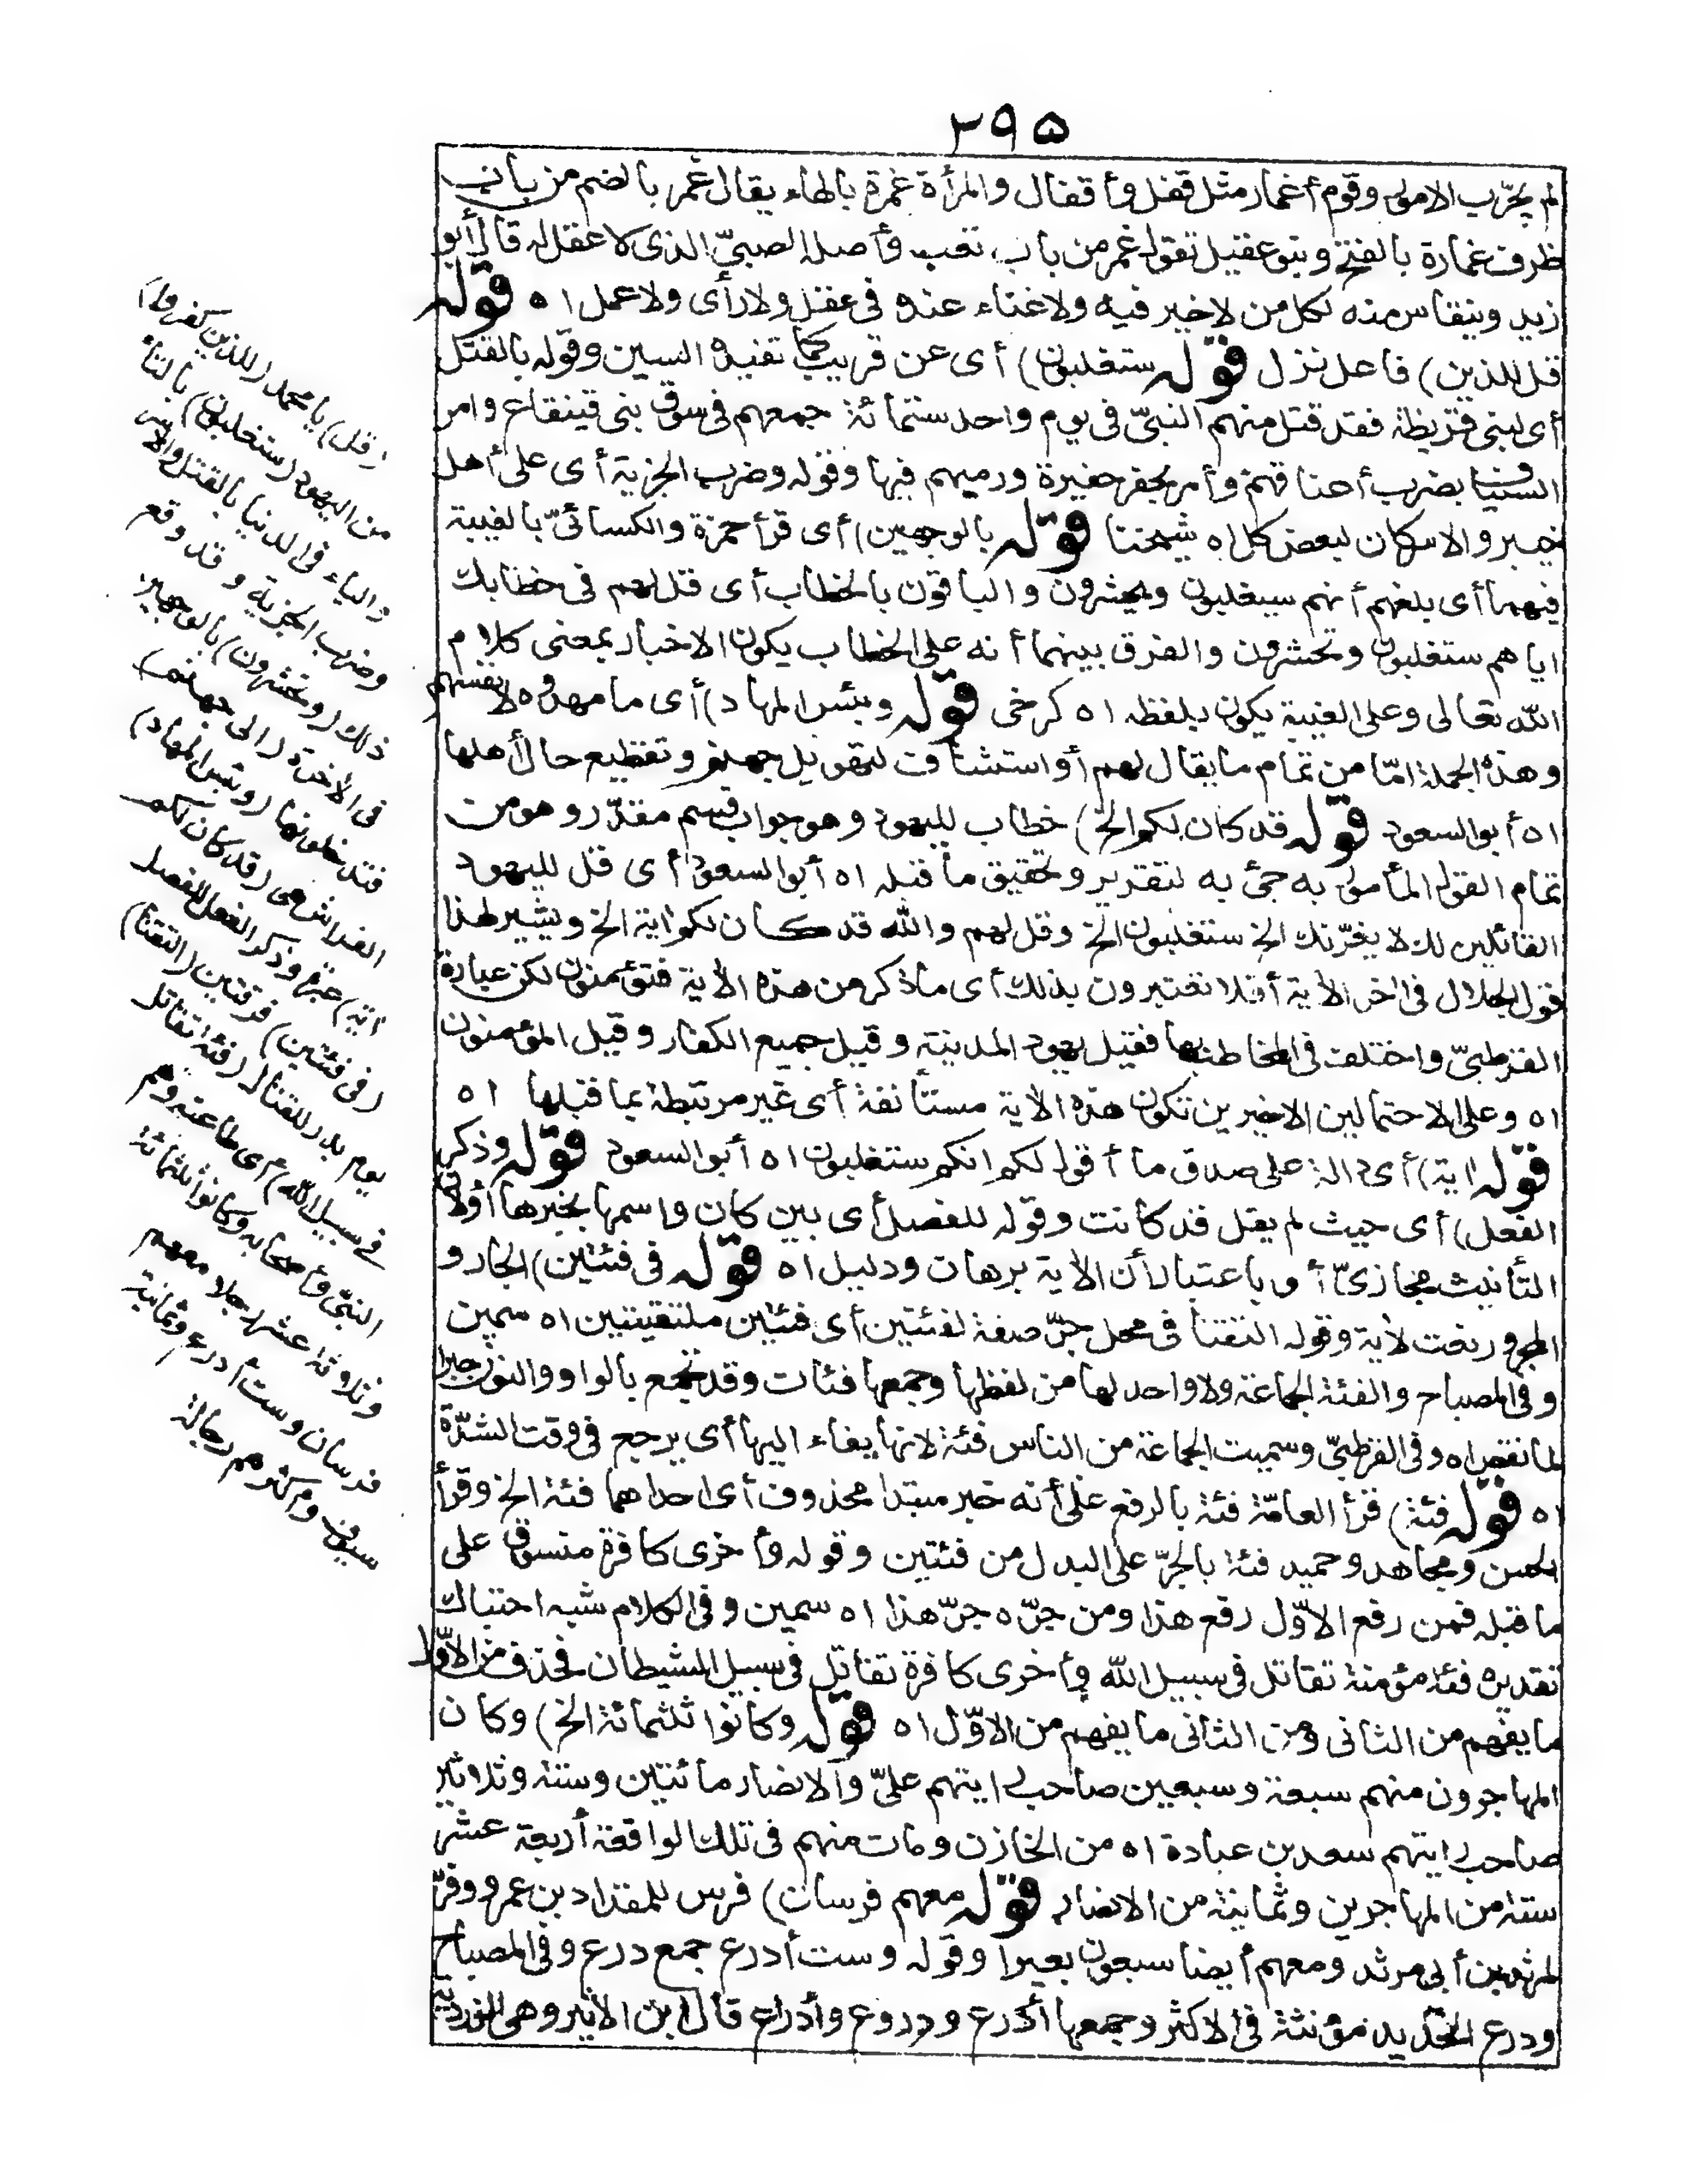 ٢٩٥
لم يجرّب الامور وقوم أغمار مثل قفل وأقفال والمرأة غمرة بالهاء يقال غمر بالضم من باب
ظرف غمارة بالفتح وبنو عقيل تقول غمر من باب تعب وأصله الصبيّ الذى لا عقل له قال أبو
زيد ويقاس منه لكل من لا خير فيه ولا غناء عنده فى عقل ولا رأى ولا عمل اه قوله
قل للذين) فاعل نزل قوله ستغلبون) أى عن قريب كما تفيده السين وقوله بالقتل
أى لبنى قريظة فقد قتل منهم النبىّ فى يوم واحد ستمائة جمعهم فى سوق بنى قينقاع وامر
السياف بضرب أعناقهم وأمر بحفر حفيرة ورميهم فيها وقوله وضرب الجزية أى على أهل
خيبر والاسكان لبعض كل اه شيخنا قوله بالوجهين) أى قرأ حمزة والكسائىّ بالغيبة
فيهما أى بلغهم أنهم سيغلبون ويحشرون والباقون بالخطاب أى قل لهم فى خطابك
اياهم ستغلبون وتحشرون والفرق بينهما أنه على الخطاب يكون الاخبار بمعنى كلام
الله تعالى وعلى الغيبة يكون بلفظه اه كرخى قوله وبئس المهاد) أى ما مهدوه لانفسهم
وهذه الجملة امّا من تمام ما يقال لهم أو استئناف لتهويل جهنم وتفظيع حال أهلها
اه أبو السعود قوله قد كان لكم الخ) خطاب لليهود وهو جواب قسم مقدّر وهو من
تمام القول المأمور به جىء به لتقرير وتحقيق ما قبله اه أبو السعود أى قل لليهود
القائلين لك لا يغرّنك الخ ستغلبون الخ وقل لهم والله قد كان لكم اية الخ ويشير لهذا
قول الجلال فى اخر الاية أفلا تعتبرون بذلك أى ما ذكر من هذه الاية فتؤمنون لكن عبارة
القرطبىّ واختلف فى المخاطب بها فقيل يهود المدينة وقيل جميع الكفار وقيل المؤمنون
اه وعلى الاحتمالين الاخيرين تكون هذه الاية مستأنفة أى غير مرتبطة بما قبلها اه
قوله اية) أى دالة على صدق ما أقول لكم انكم ستغلبون اه أبو السعود قوله وذكر
الفعل) أى حيث لم يقل قد كانت وقوله للفصل أى بين كان واسمها بخبرها أو لانّ
التأنيث مجازىّ أو باعتبار أن الاية برهان ودليل اه قوله فى فئتين) الجار و
المجرور نعت لاية وقوله التقتا فى محل جرّ صفة لفئتين أى فئتين ملتقيتين اه سمين
وفى المصباح والفئة الجماعة ولا واحد لها من لفظها وجمعها فئات وقد تجمع بالواو والنون جبرا
لما نقص اه وفى القرطبىّ وسميت الجماعة من الناس فئة لانها يفاء اليها أى يرجع فى وقت الشدّة
اه قوله فئة) قرأ العامّة فئة بالرفع على أنه خبر مبتدا محذوف أى احداهما فئة الخ وقرأ
الحسن ومجاهد وحميد فئة بالجرّ على البدل من فئتين وقوله وأخرى كافرة منسوق على
ما قبله فمن رفع الاوّل رفع هذا ومن جرّه جرّ هذا اه سمين وفى الكلام شبه احتباك
تقديره فئة مؤمنة تقاتل فى سبيل الله وأخرى كافرة تقاتل فى سبيل الشيطان فحذف من الاوّل
ما يفهم من الثانى ومن الثانى ما يفهم من الاوّل اه قوله وكانوا ثلثمائة الخ) وكان
المهاجرون منهم سبعة وسبعين صاحب رايتهم علىّ والانصار مائتين وستة وثلاثين
صاحب رايتهم سعد بن عبادة اه من الخازن ومات منهم فى تلك الواقعة أربعة عشر
ستة من المهاجرين وثمانية من الانصار قوله معهم فرسان) فرس للمقداد بن عمرو وفرس
لمرثد بن أبى مرثد ومعهم أيضا سبعون بعيرا وقوله وست أدرع جمع درع وفى المصباح
ودرع الحديد مؤنثة فى الاكثر وجمعها أدرع ودروع وأدراع قال ابن الاثير وهى الزردية
(قل) يا محمد (للذين كفروا)
من اليهود (ستغلبون) بالتاء
والياء فى الدنيا بالقتل والاسر
وضرب الجزية وقد وقع
ذلك (وتحشرون) بالوجهين
فى الاخرة (الى جهنم)
فتدخلونها (وبئس المهاد)
الفراش هى (قد كان لكم
اية) عبرة وذكر الفعل للفصل
(فى فئتين) فرقتين (التقتا)
يوم بدر للقتال (فئة تقاتل
فى سبيل الله) أى طاعته وهم
النبىّ وأصحابه وكانوا ثلثمائة
وثلاثة عشر رجلا معهم
فرسان وست أدرع وثمانية
سيوف وأكثرهم رجالة